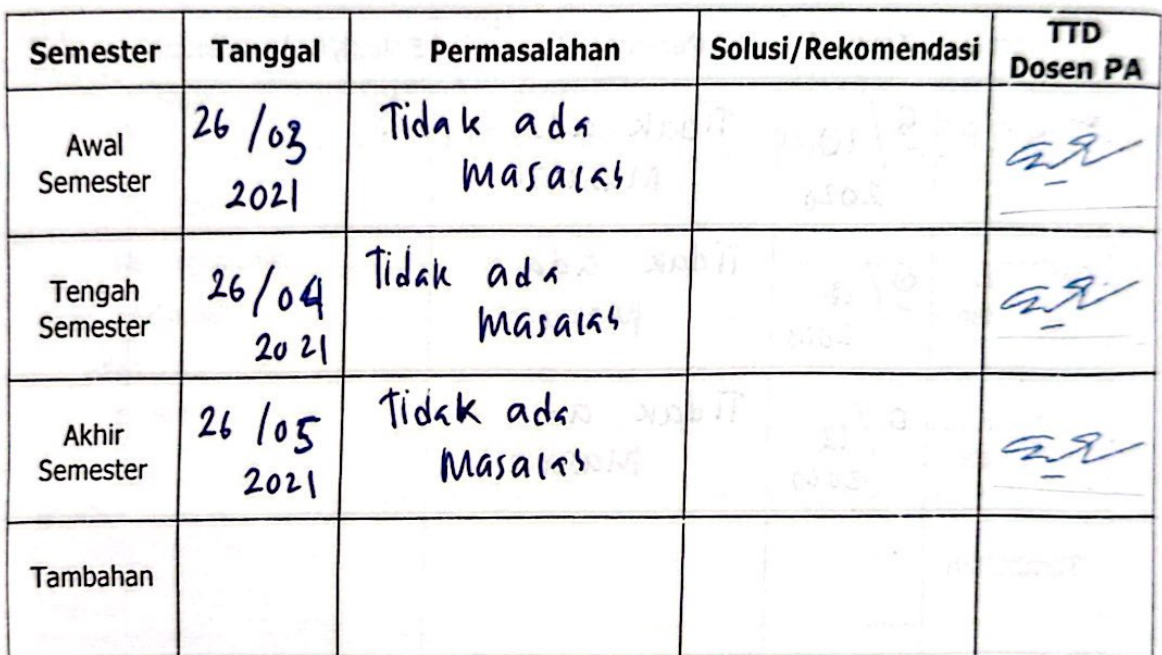 Semester Tanggal Permasalahan Solusi/Rekomendasi TTD
Dosen PA
Awal
Semester
26/03
2021
Tidak ada
Masalah
Tengah
Semester
26/04
2021
Tidak ada
Masalah
Akhir
Semester
26/05
2021
Tidak ada
Masalah
Tambahan